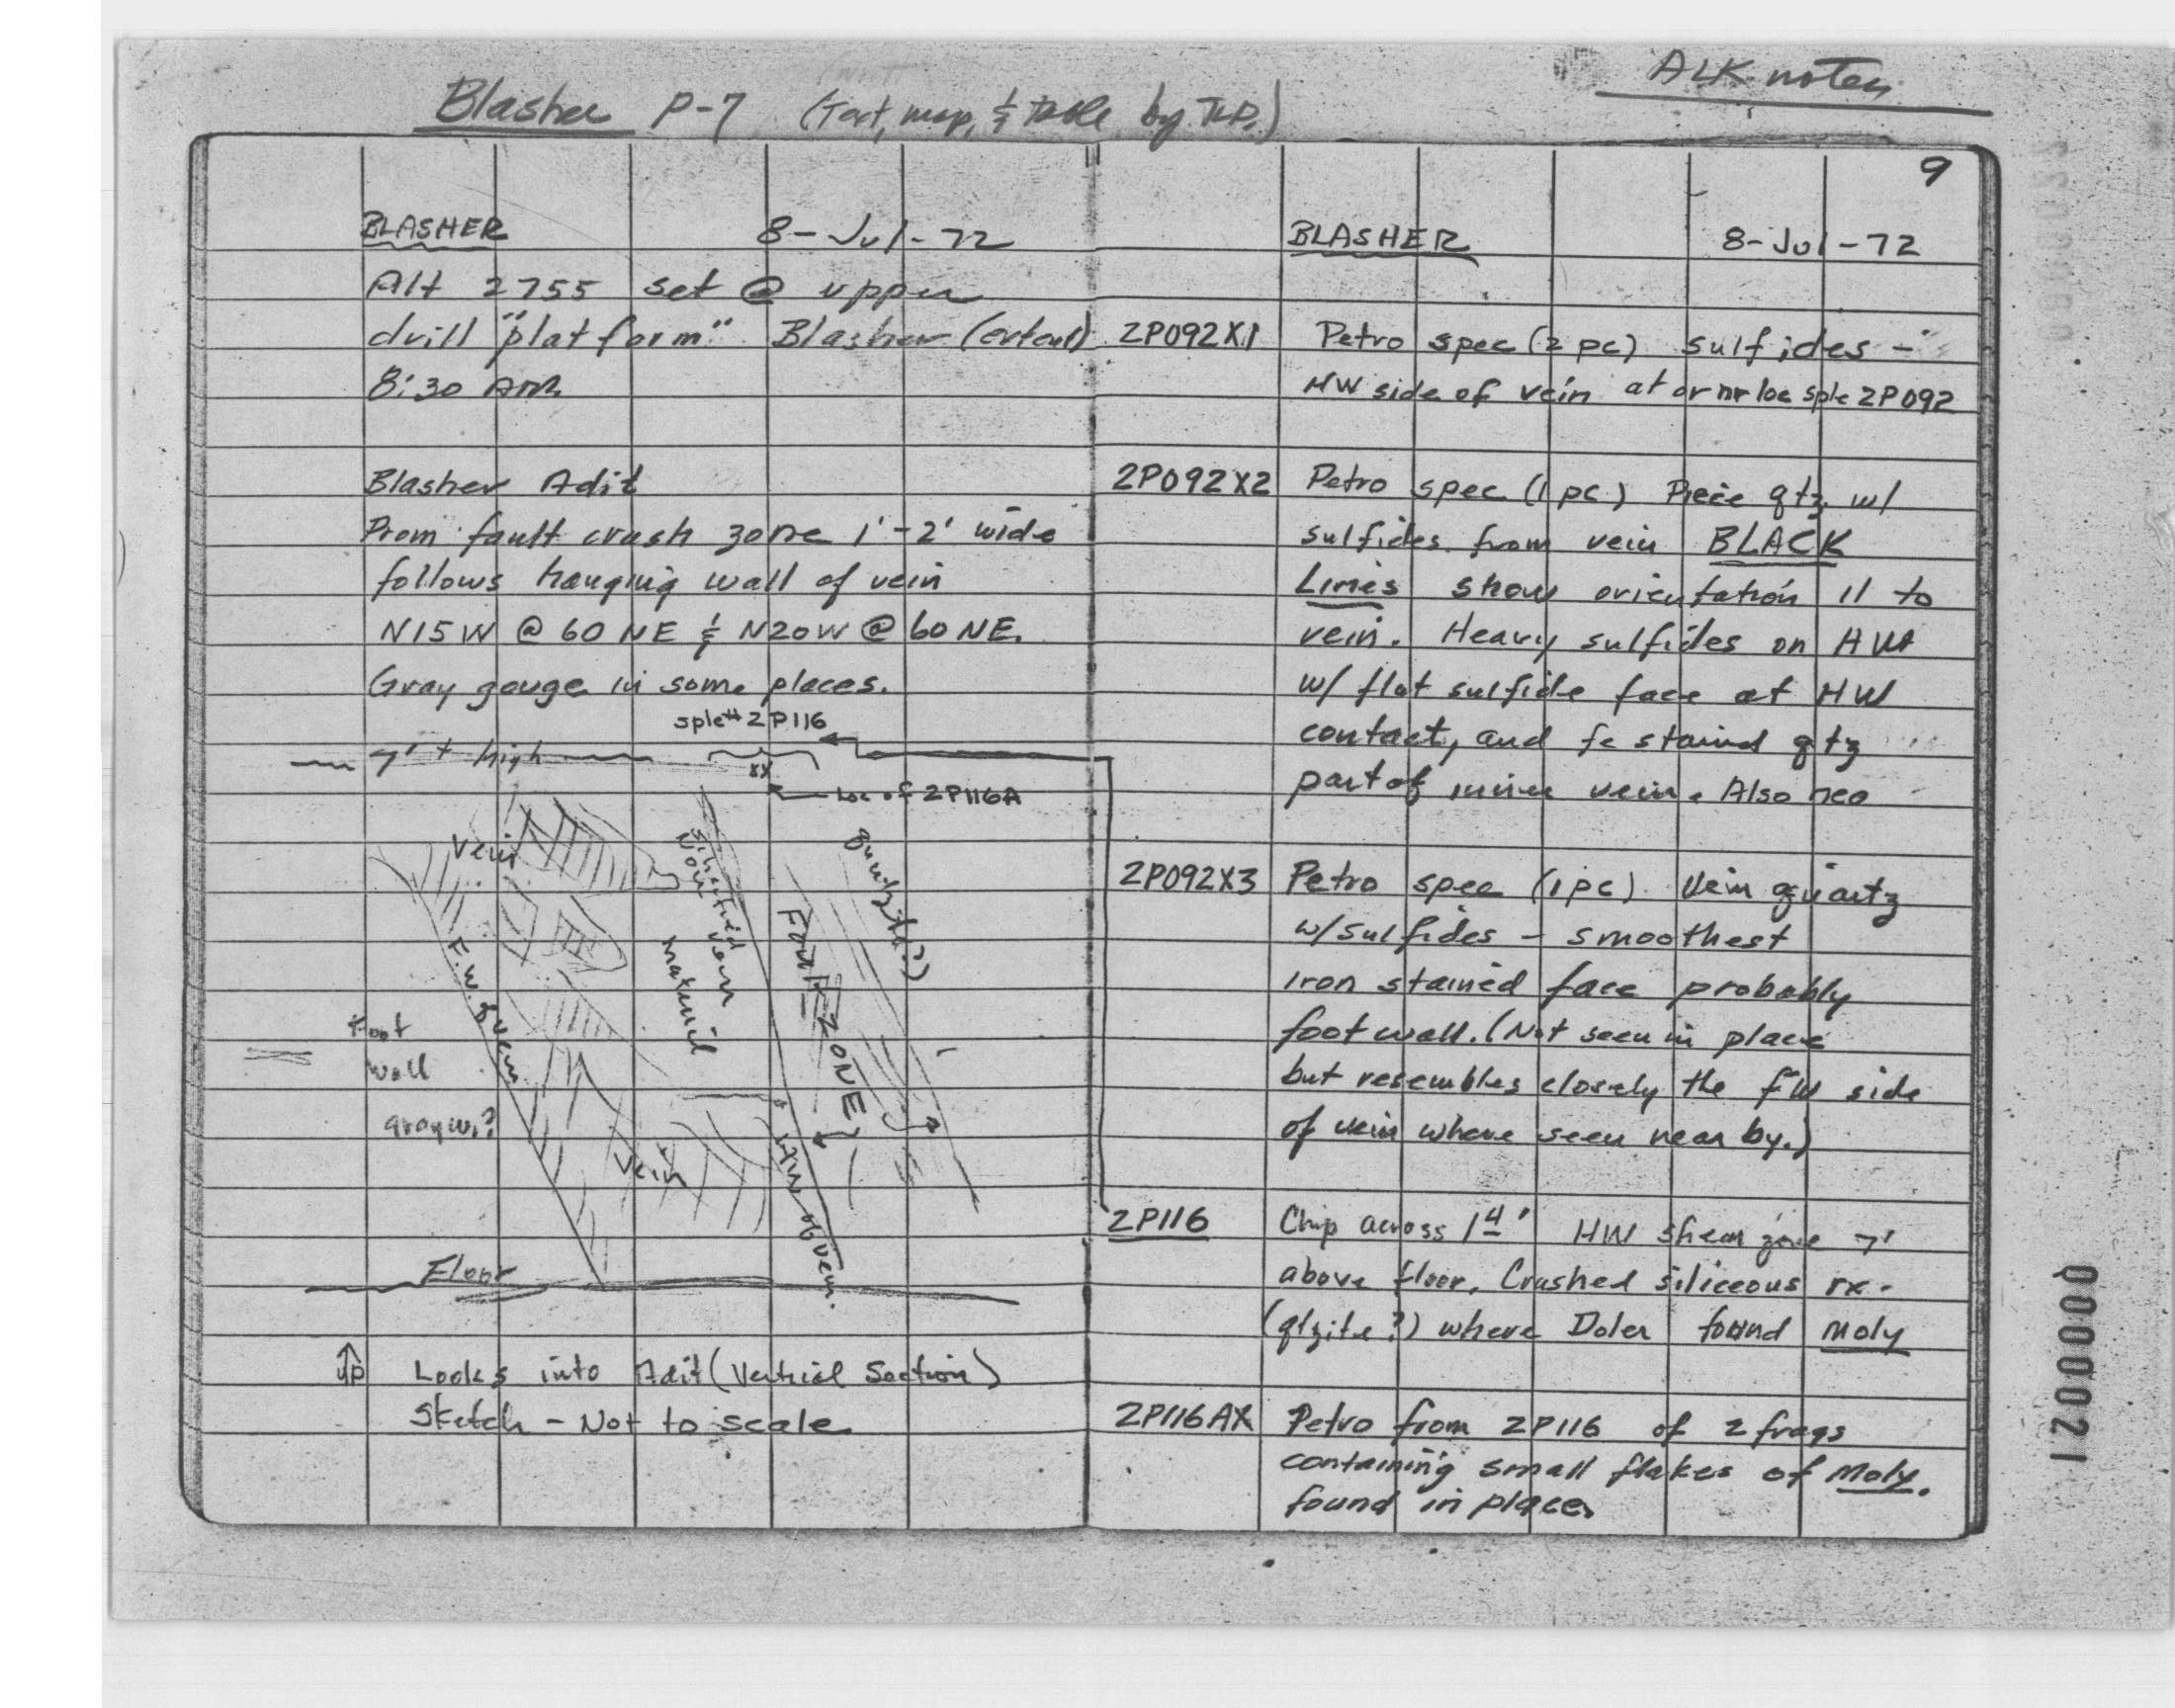 ALK notes
Blasher P-7 (Text, map, & table by TLP.)
9
BLASHER 8-Jul-72
Alt 2755 set @ upper
drill "platform" Blasher
8:30 AM
Blasher Adit
Prom fault crush zone 1'-2' wide
follows hanging wall of vein
N15W @ 60 NE & N20W @ 60 NE.
Gray gouge in some places.
sple# 2P116
7' + high
XX
Loc of 2P116A
Vein
Sheeted vein
material
quartzite(?)
Fault ZONE
F.W. of vein
Foot
wall
grayw.?
Vein
HW of vein.
Floor
up Looks into Adit (Vertical Section)
Sketch - Not to scale
BLASHER 8-Jul-72
2P092X1 Petro spec (2 pc) sulfides -
HW side of vein at or nr loc sple 2P092
2P092X2 Petro spec (1 pc) Piece qtz w/
sulfides from vein BLACK
Lines show orientation || to
vein. Heavy sulfides on HW
w/ flat sulfide face at HW
contact, and fe stained qtz
part of inner vein. Also
2P092X3 Petro spec (1 pc) Vein quartz
w/sulfides - smoothest
iron stained face probably
foot wall. (Not seen in place
but resembles closely the FW side
of vein where seen near by.)
2P116 Chip across 1 4' HW shear zone 7'
above floor. Crushed siliceous rx.
(qtzite?) where Doler found moly
2P116AX Petro from 2P116 of 2 frags
containing small flakes of moly.
found in place.
Q000021